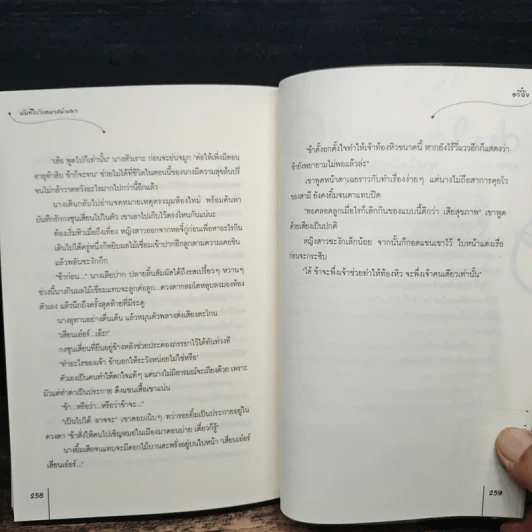 "เฮ้อ พูดไปก็เท่านั้น" นางหัวเราะ ก่อนจะย่นจมูก "ต่อให้เพิ่งมีตอน
อายุห้าสิบ ข้าก็จะทน" ช่วยไม่ได้ที่ชีวิตในตอนนี้ของนางมีความสุขล้นปรี่
จนไม่กล้าวาดหวังอะไรมากไปกว่านี้อีกแล้ว
นางเดินกลับไปอ่านจดหมายเหตุตรงมุมห้องใหม่ พร้อมค้นหา
บันทึกรักกงซุนเสี่ยนไปในตัว เขาเอาไปเก็บไว้ตรงไหนกันแน่นะ
ท้องเริ่มหิวเมื่อถึงเที่ยง หญิงสาวออกจากหอจี้กู่ก่อนเพื่อหาอะไรกิน
เดินไปได้ครู่หนึ่งก็หยิบผลไม้เชื่อมเข้าปากอีกลูกตามความเคยชิน
แล้วพลันชะงักกึก
"ช้าก่อน..." นางเลียปาก ปลายลิ้นสัมผัสได้ถึงรสเปรี้ยวๆ หวานๆ
ช่วงนี้นางกินผลไม้เชื่อมแทนจะลูกต่อลูก...ดวงตากลมโตหลุบลงมองท้อง
ตัวเอง แล้วนึกถึงครั้งสุดท้ายที่มีระดู
นางอุทานอย่างตื่นเต้น แล้วหมุนตัวพลางส่งเสียงตะโกน
"เสี่ยนเอ๋อร์...เอ๊ะ!"
กงซุนเสี่ยนที่ยืนอยู่ข้างหลังช่วยประคองภรรยาไว้ได้ทันท่วงที
"ทำอะไรของเจ้า ข้าบอกให้ระวังหน่อยไม่ใช่หรือ"
ตัวเองเป็นคนทำให้ตกใจแท้ๆ แต่นางไม่มีอารมณ์จะเถียงด้วย เพราะ
มัวแต่ทำตาเป็นประกาย ดึงแขนเสื้อเขาแน่น
"ข้า...หรือว่า...หรือว่าข้าจะ..."
"เป็นไปได้ อาจจะ" เขาตอบเนิบๆ ทว่ารอยยิ้มเป็นประกายอยู่ใน
ดวงตา "ข้าสั่งให้คนไปเชิญหมอในเมืองมาตอนบ่าย เดี๋ยวก็รู้"
นางยิ้มเสียจนแทบจะมีดอกไม้บานสะพรั่งอยู่บนใบหน้า "เสี่ยนเอ๋อร์
เสี่ยนเอ๋อร์..."
258
"ข้าตั้งอกตั้งใจทำให้เจ้าท้องหิวขนาดนี้ หากยังไร้วี่แววอีกก็แสดงว่า
ข้ายังพยายามไม่พอแล้วล่ะ"
เขาพูดหน้าตาเฉยราวกับทำเรื่องง่ายๆ แต่นางไม่ถือสาการคุยโว
ของสามี ยังคงยิ้มจนตาแทบปิด
"พอคลอดลูกเมื่อไรก็เลิกกินของแบบนี้ดีกว่า เสียสุขภาพ" เขาพูด
ด้วยเสียงเป็นปกติ
หญิงสาวชะงักเล็กน้อย จากนั้นก็กอดแขนเขาไว้ ใบหน้าแดงเรื่อ
ก่อนจะกระซิบ
"ได้ ข้าจะพึ่งเจ้าช่วยทำให้ท้องหิว จะพึ่งเจ้าคนเดียวเท่านั้น"
259